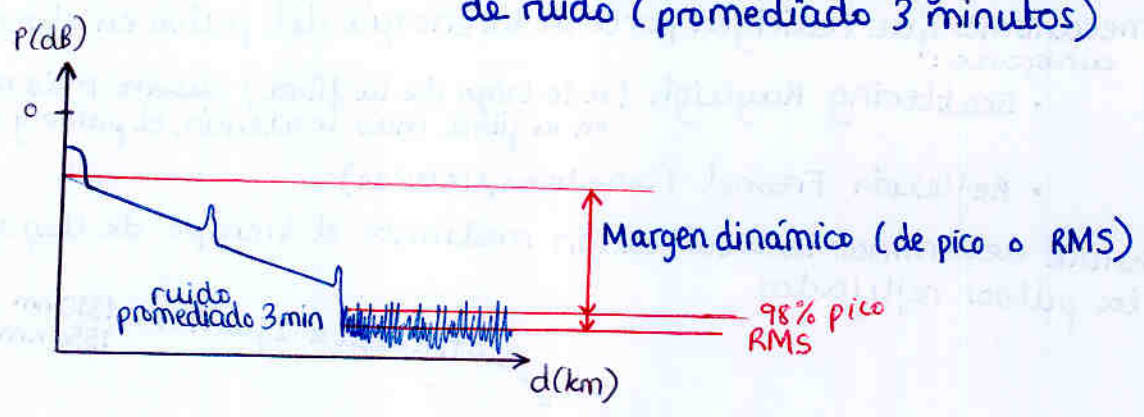 de ruido (promediado 3 minutos)
P(dB)
0
Margen dinámico (de pico o RMS)
ruido
promediado 3 min
98% pico
RMS
d(km)